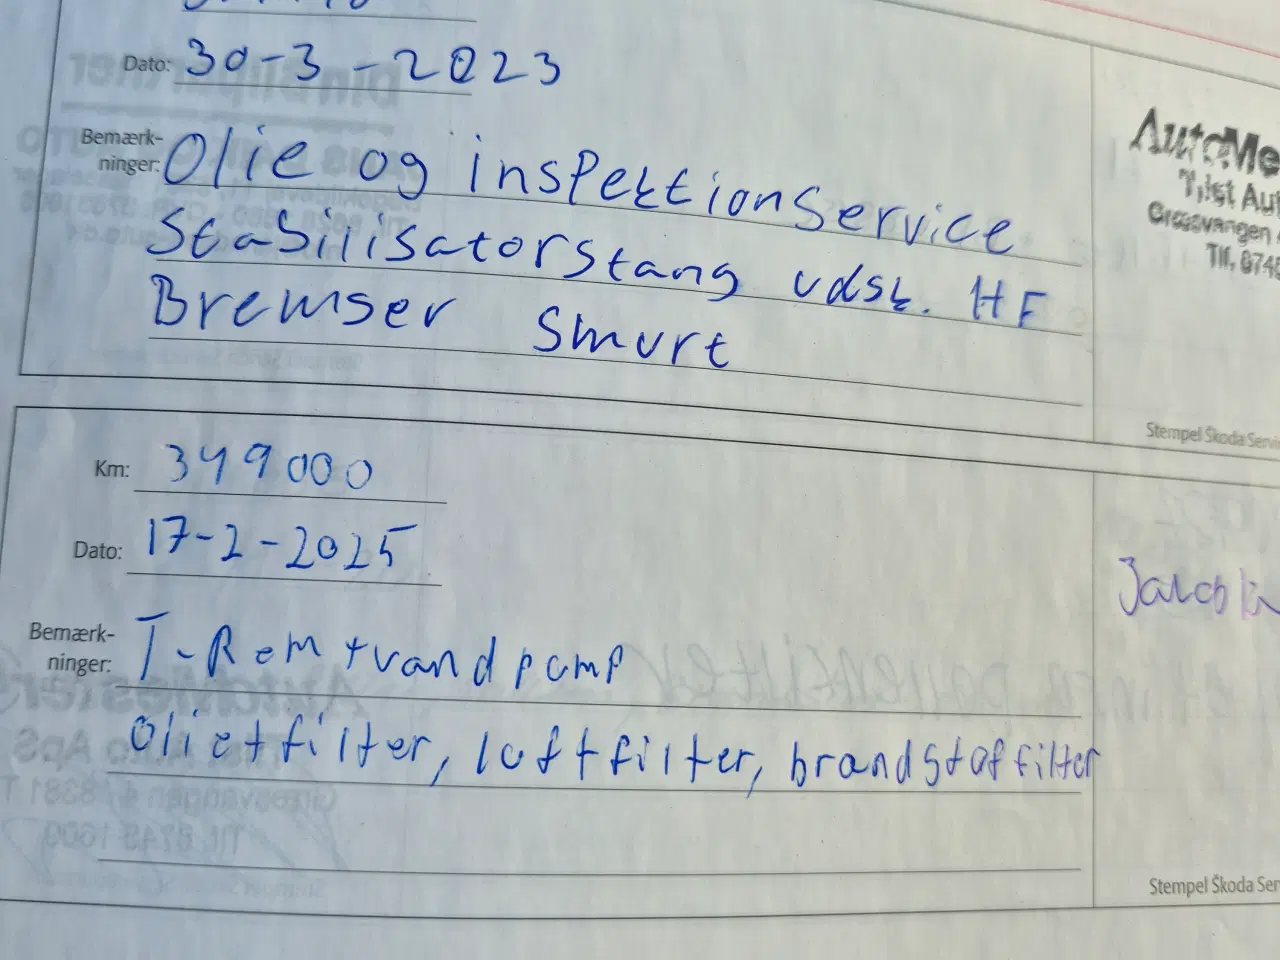 Dato: 30-3-2023
Bemærk-
ninger: Olie og inspektionservice
Stabilisatorstang udsk. HF
Bremser Smurt
AutoMe
Tilst Aut
Graasvangen
Tlf. 874
Stempel Škoda Servi
Km: 349000
Dato: 17-2-2025
Bemærk-
ninger: T-Rem + vandpump
Olie+filter, luftfilter, brandstoffilter
Jacob
Stempel Škoda Ser